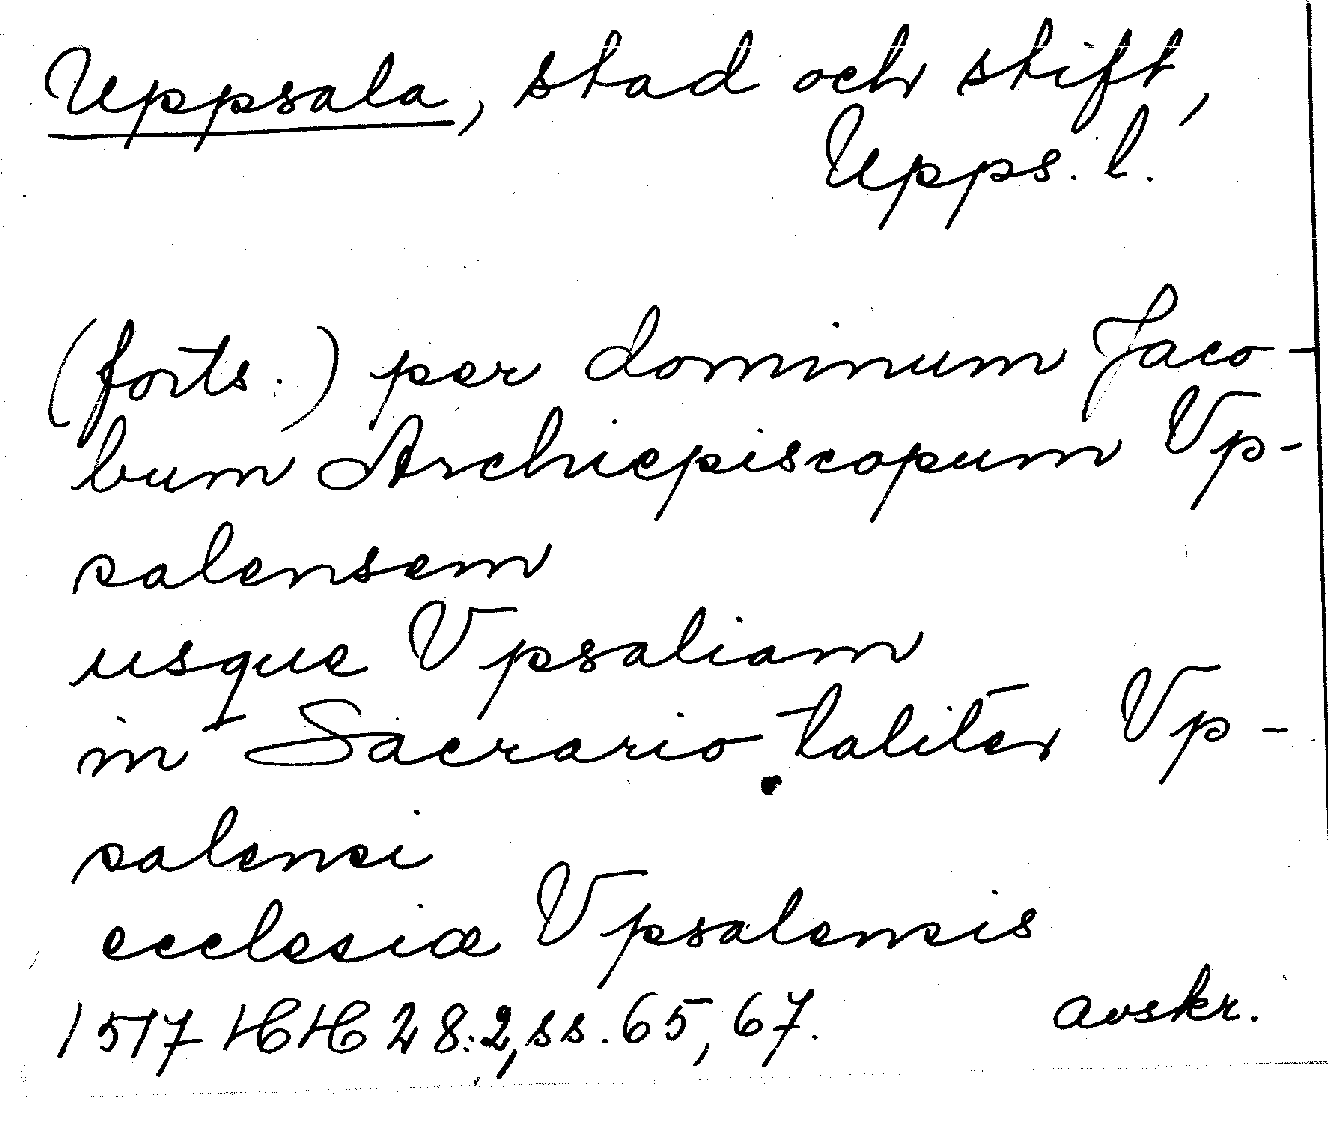 Uppsala, stad och stift,
Upps. l.
(forts.) per dominum Jaco-
bum Archiepiscopum Vp-
salensem
usque Vpsaliam
in Sacrario. taliter Vp-
salensi
ecclesiæ Vpsalensis
1517 HH 28:2, ss. 65, 67. avskr.